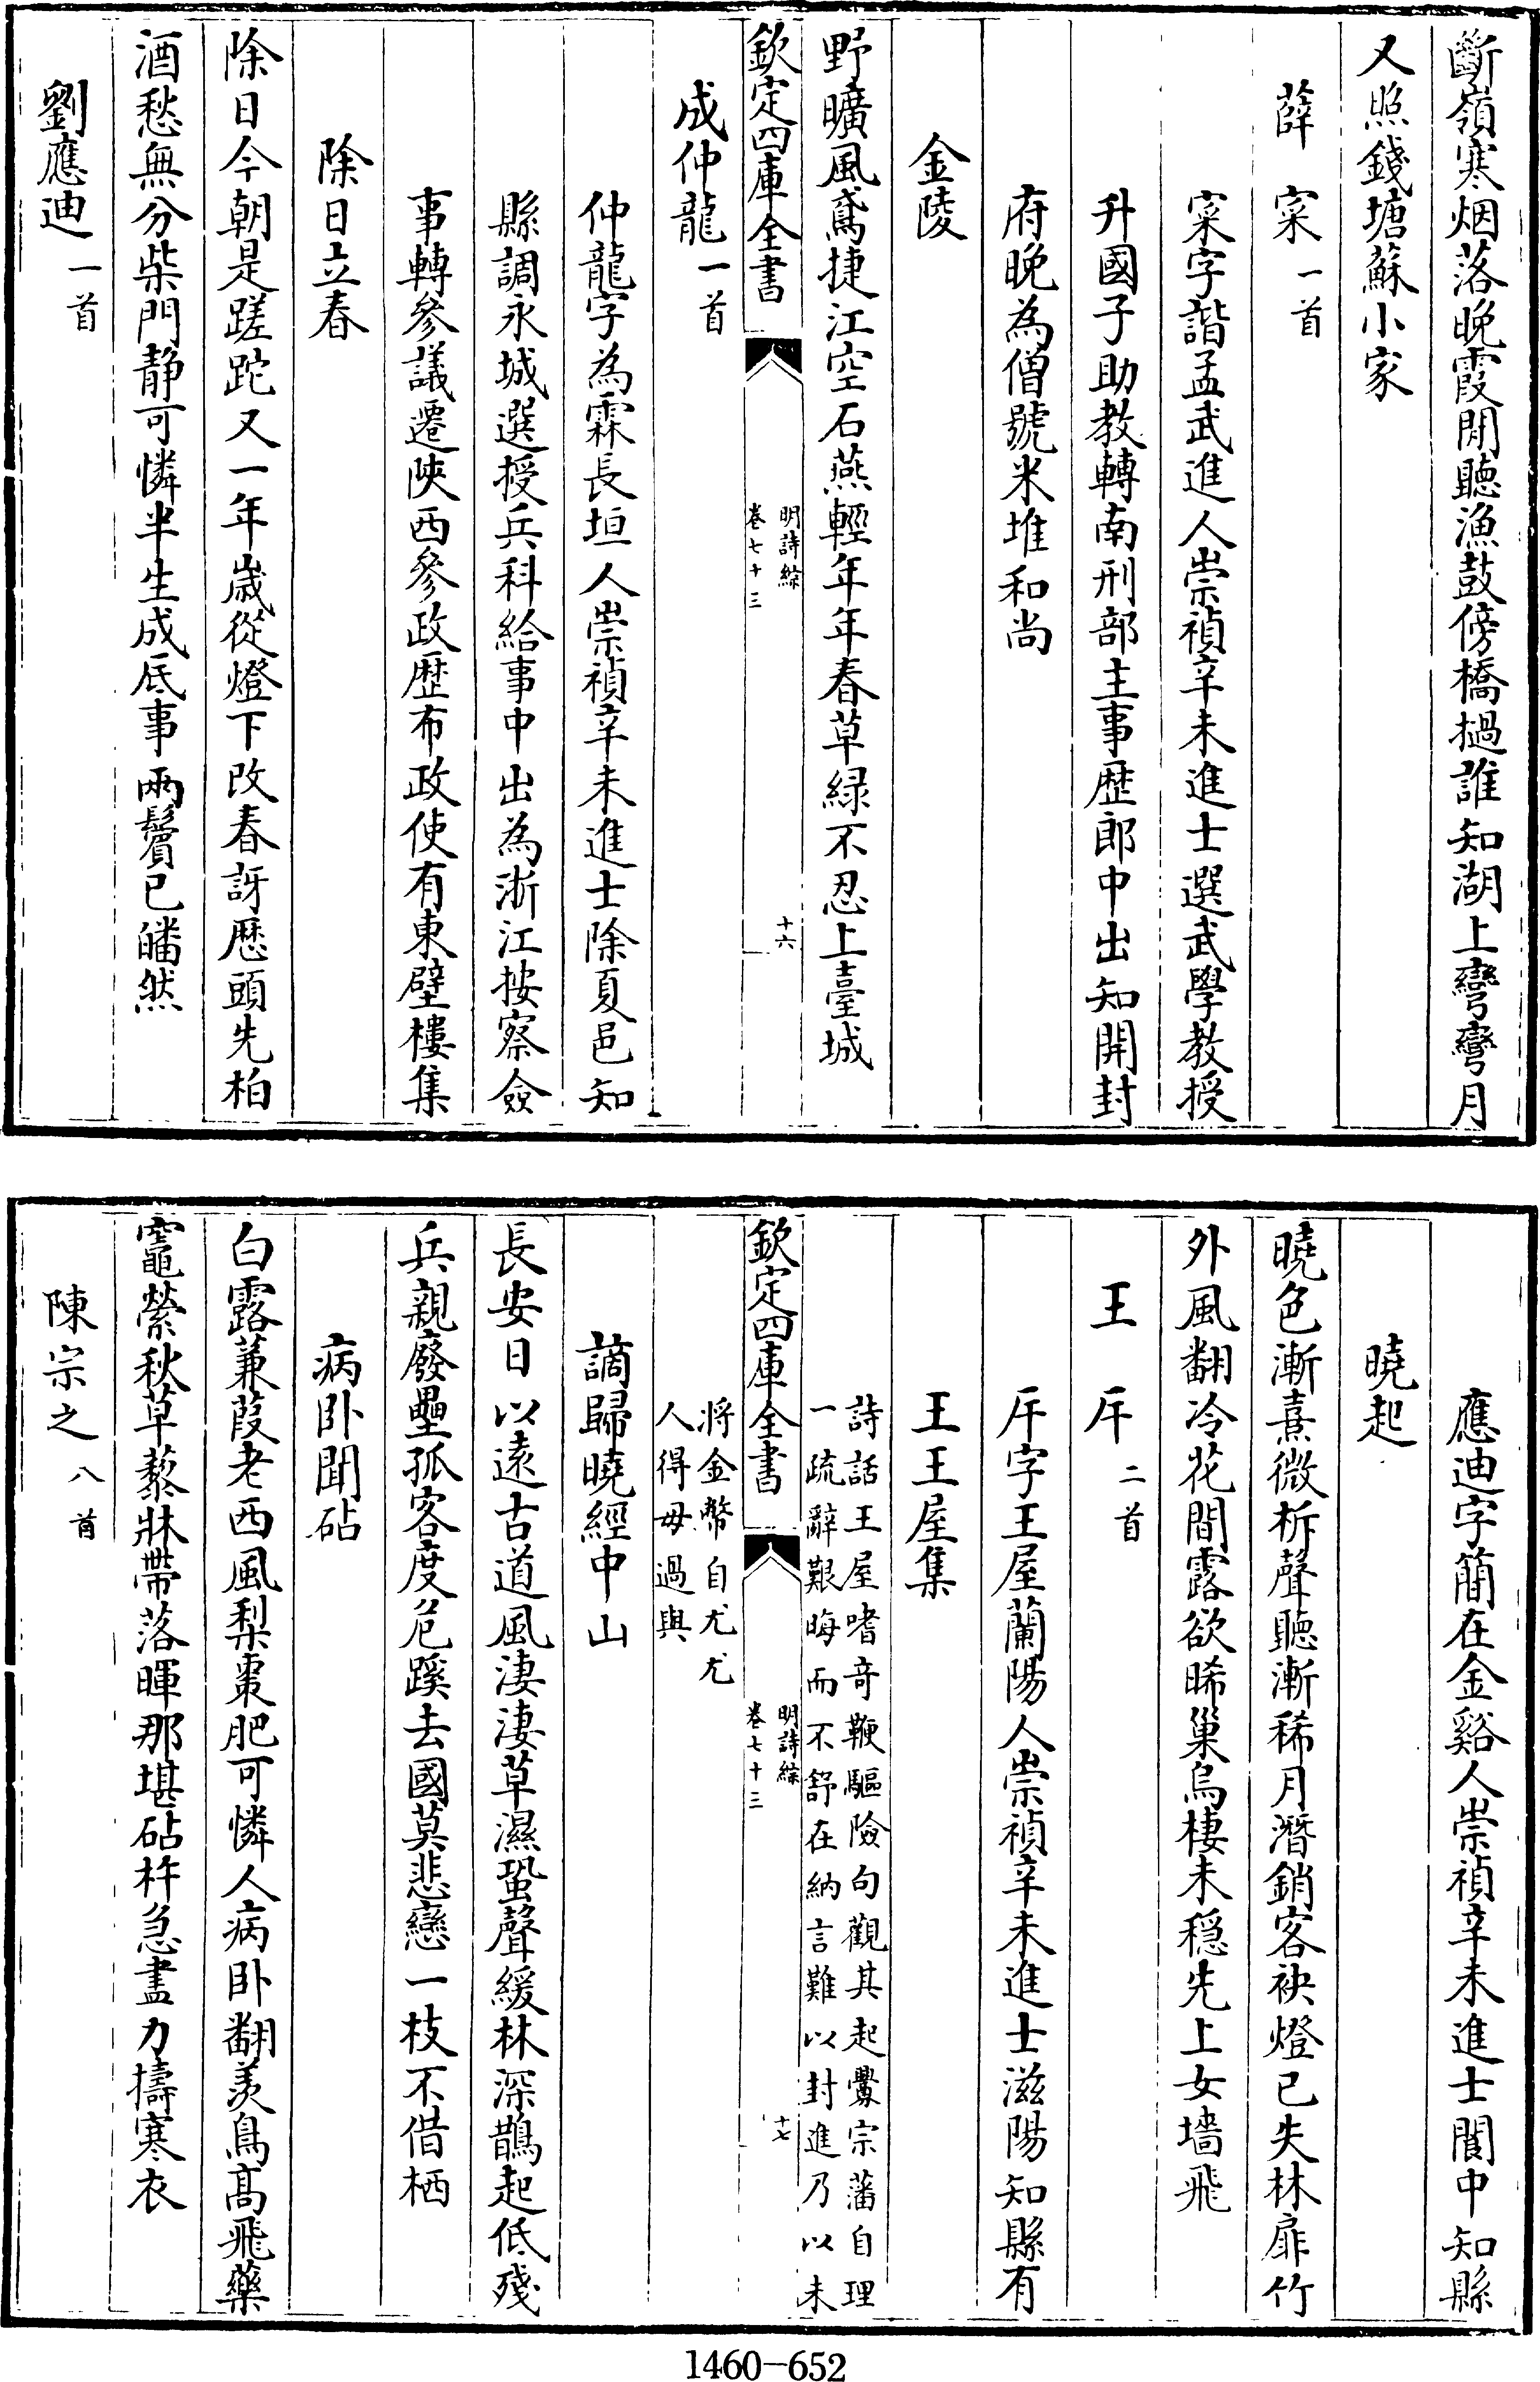 斷嶺寒烟落晚霞閒聽漁鼓傍橋撾誰知湖上彎彎月
又照錢塘蘇小家
薛寀一首
寀字諧孟武進人崇禎辛未進士選武學教授
升國子助教轉南刑部主事歴郎中出知開封
府晚為僧號米堆和尚
金陵
野曠風鳶捷江空石燕輕年年春草緑不忍上臺城
欽定四庫全書
明詩綜
卷七十三
十六
成仲龍一首
仲龍字為霖長垣人崇禎辛未進士除夏邑知
縣調永城選授兵科給事中出為浙江按察僉
事轉參議遷陜西參政歴布政使有東壁樓集
除日立春
除日今朝是蹉跎又一年嵗從燈下改春訝厯頭先柏
酒愁無分柴門静可憐半生成底事兩鬢已皤然
劉應迪一首
應迪字簡在金谿人崇禎辛未進士閬中知縣
曉起
曉色漸熹微柝聲聽漸稀月潛銷客袂燈已失林扉竹
外風翻冷花間露欲晞巢烏棲未穏先上女墻飛
王厈二首
厈字王屋蘭陽人崇禎辛未進士滋陽知縣有
王王屋集
詩話王屋嗜奇鞭驅險句觀其起釁宗藩自理
一疏辭艱晦而不舒在納言難以封進乃以未
欽定四庫全書
明詩綜
卷七十三
十七
將金幣自尤尤
人得毋過與
謫歸曉經中山
長安日以遠古道風淒淒草濕蛩聲緩林深鵲起低殘
兵親廢壘孤客度危蹊去國莫悲戀一枝不借栖
病卧聞砧
白露蒹葭老西風梨棗肥可憐人病卧翻羨鳥髙飛藥
竈縈秋草藜牀帶落暉那堪砧杵急盡力擣寒衣
陳宗之八首
1460－652